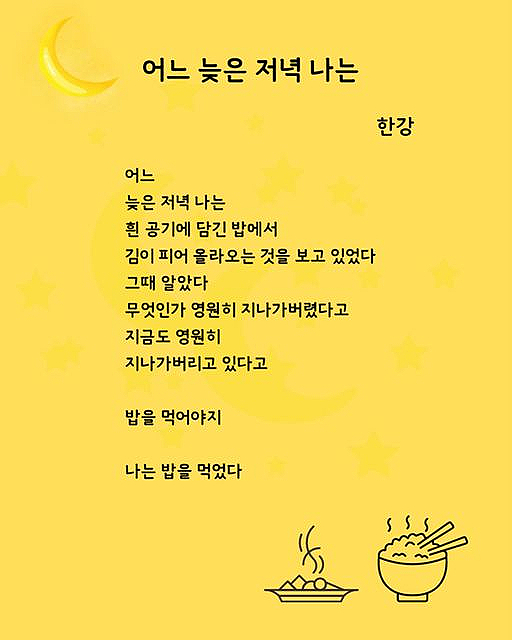 어느 늦은 저녁 나는
한강
어느
늦은 저녁 나는
흰 공기에 담긴 밥에서
김이 피어 올라오는 것을 보고 있었다
그때 알았다
무엇인가 영원히 지나가버렸다고
지금도 영원히
지나가버리고 있다고
밥을 먹어야지
나는 밥을 먹었다